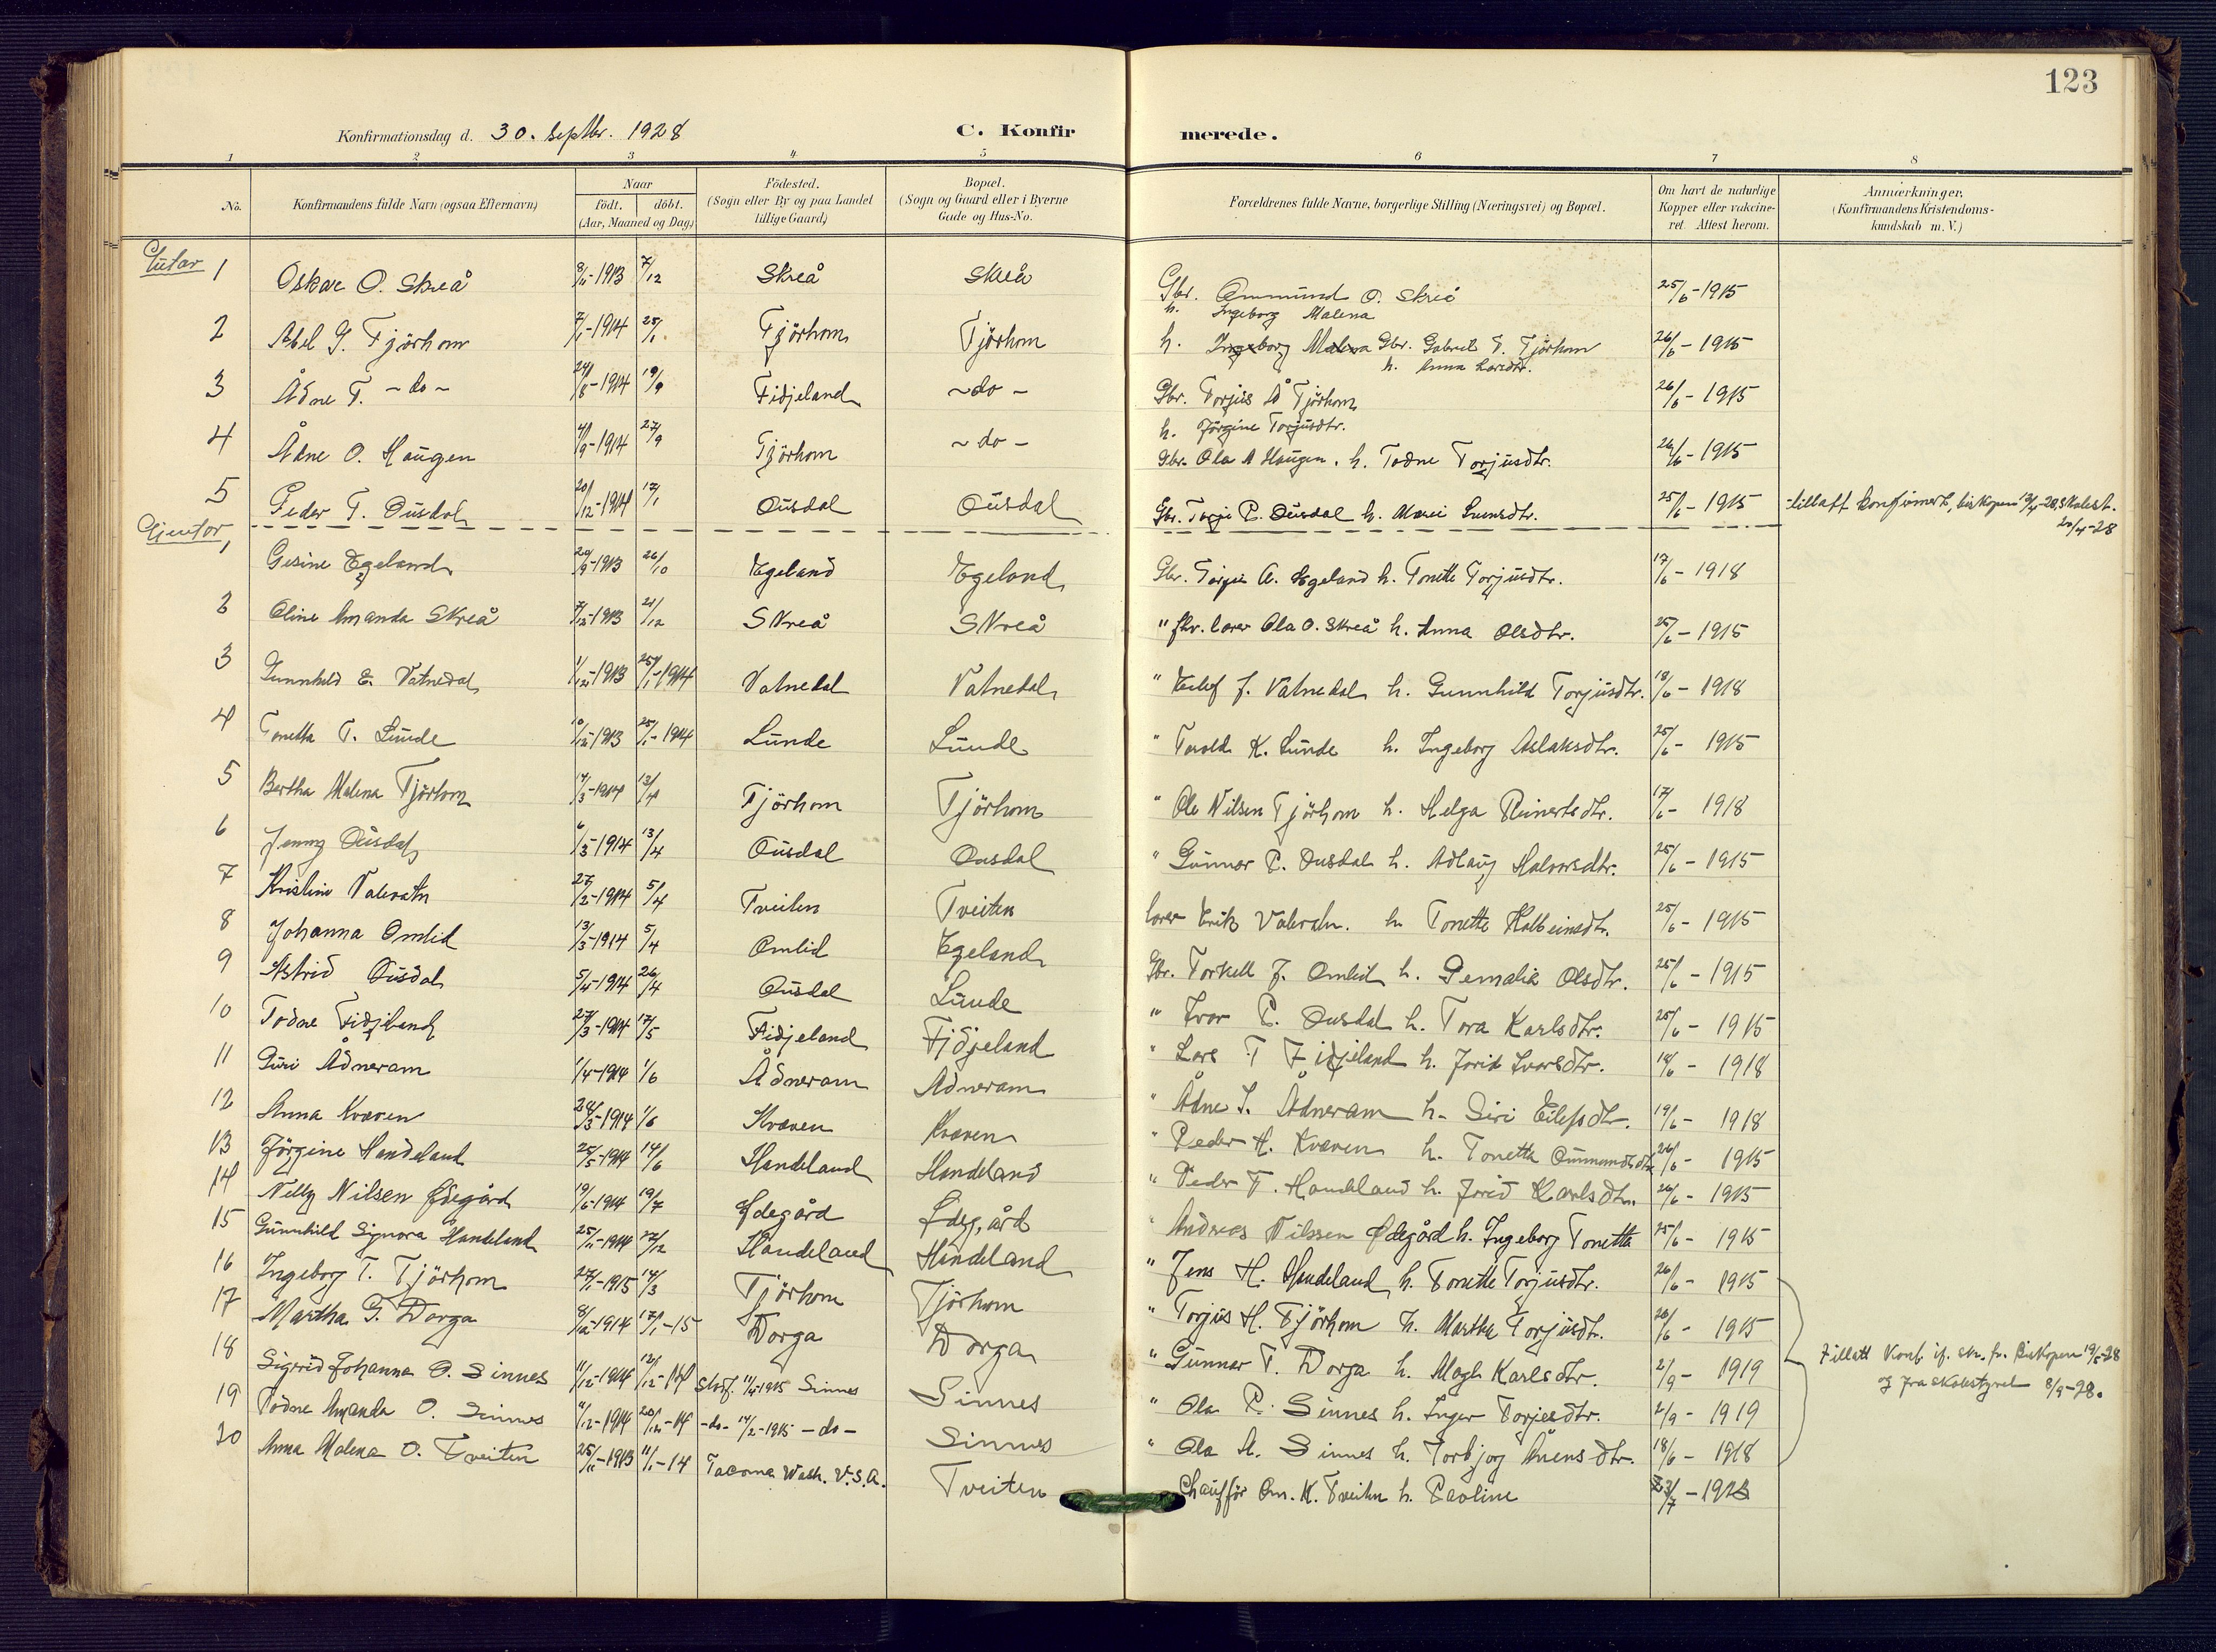 123
Konfirmationsdag d. 30. septbr. 1928 C. Konfirmerede.
1 2 3 4 5 6 7 8
No. Konfirmandens fulde Navn (ogsaa Efternavn) Naar Födt. döbt. (Aar, Maaned og Dag.) Födested. (Sogn eller By og paa Landet tillige Gaard.) Bopæl. (Sogn og Gaard eller i Byerne Gade og Hus-No. Forældrenes fulde Navne, borgerlige Stilling (Næringsvei) og Bopæl. Om havt de naturlige Kopper eller vakcineret. Attest herom. Anmærkninger. (Konfirmandens Kristendomskundskab m. V.)
Gutar
1 Oskar O. Skreå 9/11-1913 7/12 Skreå Skreå Gbr. Ommund O. Skreå 25/6-1915
h. Ingeborg Malena
2 Abel G. Tjörhom 7/1-1914 25/1 Tjörhom Tjörhom h. Ingeborg Malena Gbr. Gabriel T. Tjörhom 26/6-1915
h. Anna Larsdtr.
3 Ådne T. -do- 24/8-1914 19/9 Fidjeland -do- Gbr. Torjus Å Tjörhom 26/6-1915
h. Jörgine Torjusdtr.
4 Ådne O. Haugen 4/9-1914 27/9 Tjörhom -do- Gbr. Ola A Haugen. h. Todne Torjusdtr. 26/6-1915
5 Peder T. Ousdal 20/12-1914 17/1 Ousdal Ousdal Gbr. Torje P. Ousdal h. Marei Sveinsdtr. 25/6-1915 tillatt konfirmert, biskopen 12/4-28, skolest.
20/4-28
Gjentor
1 Gesine Egeland 20/9-1913 26/10 Egeland Egeland Gbr. Torjus A. Egeland h. Tonette Torjusdtr. 17/6-1918
2 Oline Amanda Skreå 7/12-1913 21/12 Skreå Skreå " fhv. lærer Ola O. Skreå h. Anna Olsdtr. 25/6-1915
3 Gunnhild E. Vatnedal 1/12-1913 25/1-1914 Vatnedal Vatnedal " Eilef J. Vatnedal h. Gunnhild Torjusdtr. 18/6-1918
4 Tonetta T. Lunde 10/12-1913 25/1-1914 Lunde Lunde " Tarald K. Lunde h. Ingeborg Aslaksdtr. 25/6-1915
5 Bertha Malena Tjörhom 14/3-1914 13/4 Tjörhom Tjörhom " Ole Nilsen Tjörhom h. Helga Reinertsdtr. 17/6-1918
6 Jenny Ousdal 6/3-1914 13/4 Ousdal Ousdal " Gunnar P. Ousdal h. Adlaug Halvorsdtr. 25/6-1915
7 Kristine Valevatn 27/2-1914 5/4 Tveiten Tveiten lærer Erik Valevatn. h. Tonette Kolbeinsdtr. 25/6-1915
8 Johanna Omlid 13/3-1914 5/4 Omlid Egeland Gbr. Torkell J. Omlid h. Pernalia Olsdtr. 25/6-1915
9 Astrid Ousdal 5/4-1914 26/4 Ousdal Lunde " Ivar P. Ousdal h. Tora Karlsdtr. 25/6-1915
10 Todne Fidjeland 27/3-1914 17/5 Fidjeland Fidjeland " Lars T Fidjeland h. Jorid Ivarsdtr. 18/6-1918
11 Guri Ådneram 1/4-1914 1/6 Ådneram Adneram " Ådne S. Ådneram h. Siri Eilefsdtr. 19/6-1918
12 Anna Kvæven 28/3-1914 1/6 Kvæven Kvæven " Peder H. Kvæven h. Tonetta Ommundsdtr 26/6-1915
13 Jörgine Handeland 25/5-1914 14/6 Handeland Handeland " Peder T. Handeland h. Jorid Karlsdtr. 26/6-1915
14 Nelly Nilsen Ødegård 19/6-1914 19/7 Ødegård Ødegård Andreas Nilssen Ødegård h. Ingeborg Tonetta 25/6-1915
15 Gunnhild Signora Handeland 25/11-1914 27/12 Handeland Handeland " Jens H. Handeland h. Tonette Torjusdtr. 26/6-1915
16 Ingeborg T. Tjörhom 27/1-1915 14/3 Tjörhom Tjörhom " Torjus H. Tjörhom h. Martha Torjusdtr. 26/6-1915
17 Martha G. Dorga 8/12-1914 17/1-15 Dorga Dorga " Gunnar T. Dorga h. Magli Karlsdtr. 2/9-1919 Tillatt Konf. if. skr. fr. Biskopen 19/5-28
og fra skolestyret 8/9-28.
18 Sigrid Johanna O. Sinnes 11/12-1914 12/12-14 Stadf. 11/4-1915 Sinnes Sinnes " Ola P. Sinnes h. Inger Torjesdtr. 2/9-1919
19 Todne Amanda O. Sinnes 11/12-1914 20/12-14 -do- 14/2-1915 -do- Sinnes " Ola A. Sinnes h. Torbjog Ånensdtr. 18/6-1918
20 Anna Malena O. Tveiten 25/11-1913 11/1-14 Tacoma Wash. U.S.A. Tveiten Chaufför Om. K. Tveiten h. Paoline 23/7-1928